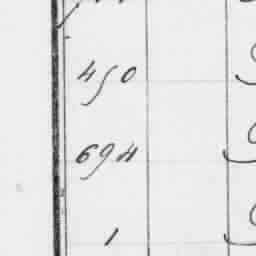 450
694
1